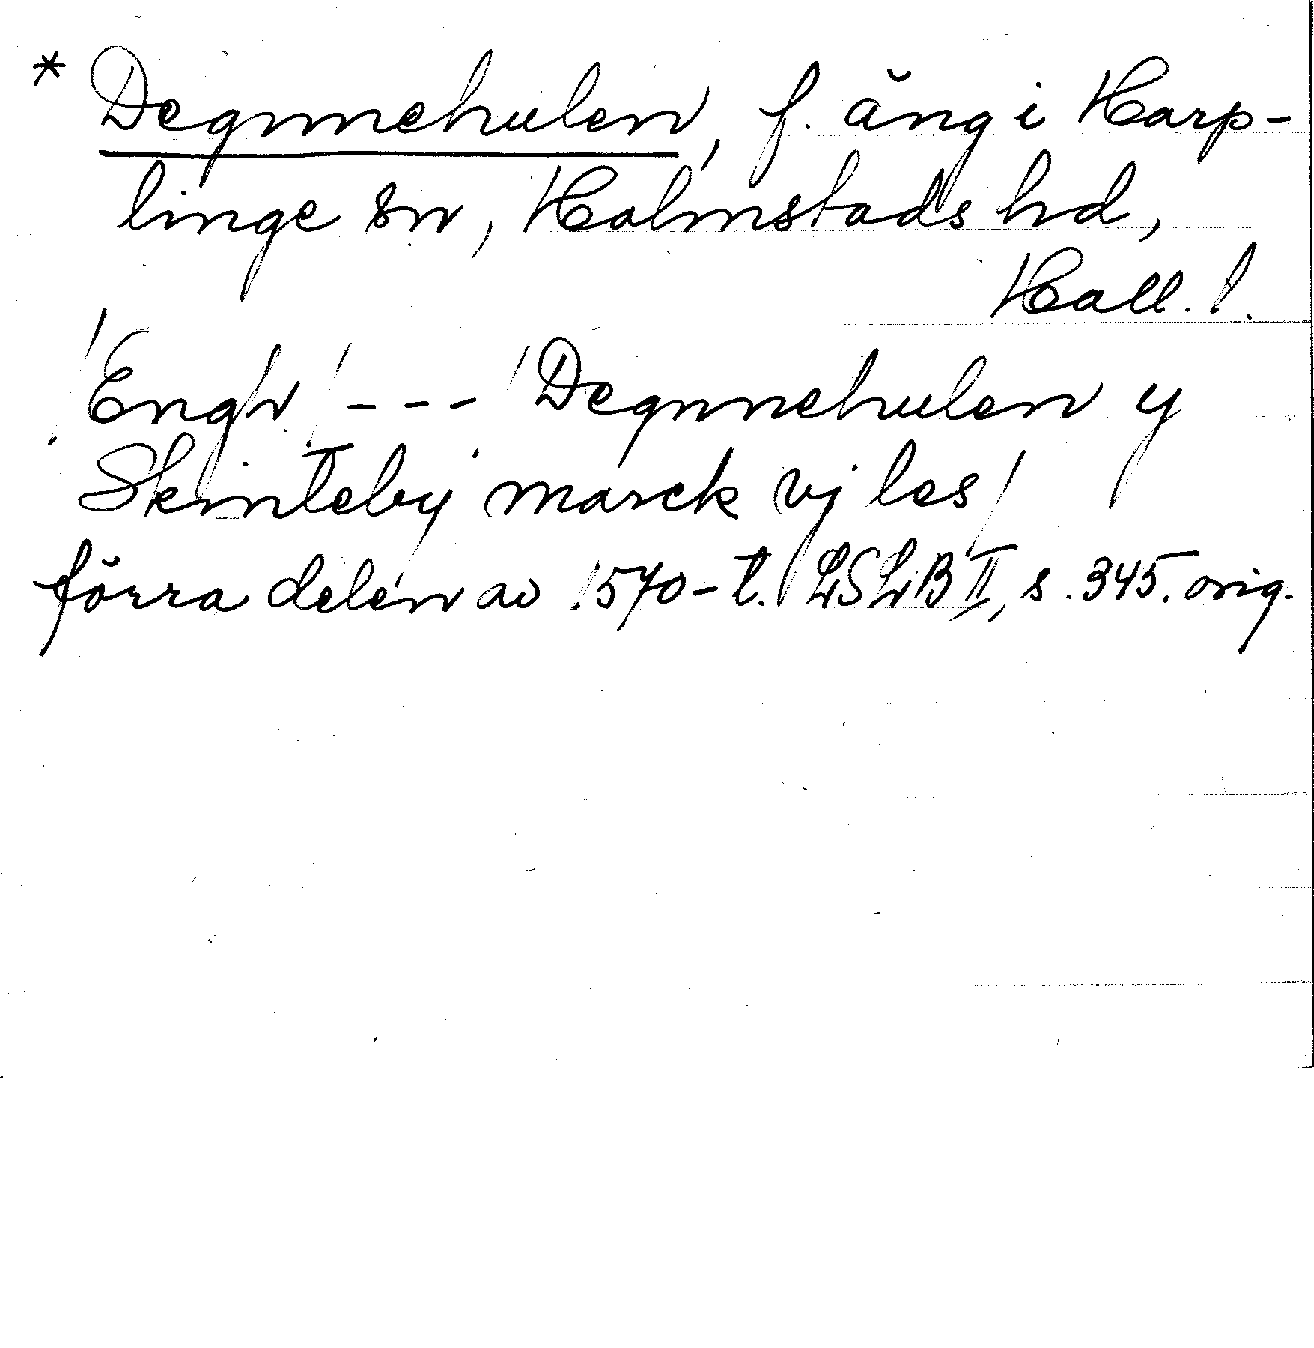 * Degnnehulen, f. äng i Harp-
linge sn, Halmstads hd,
Hall. l.
"Engh" - - - "Degnnehulen y
Skinteby marck vj les"
förra delen av 1570-t. LSLB II, s. 345. orig.